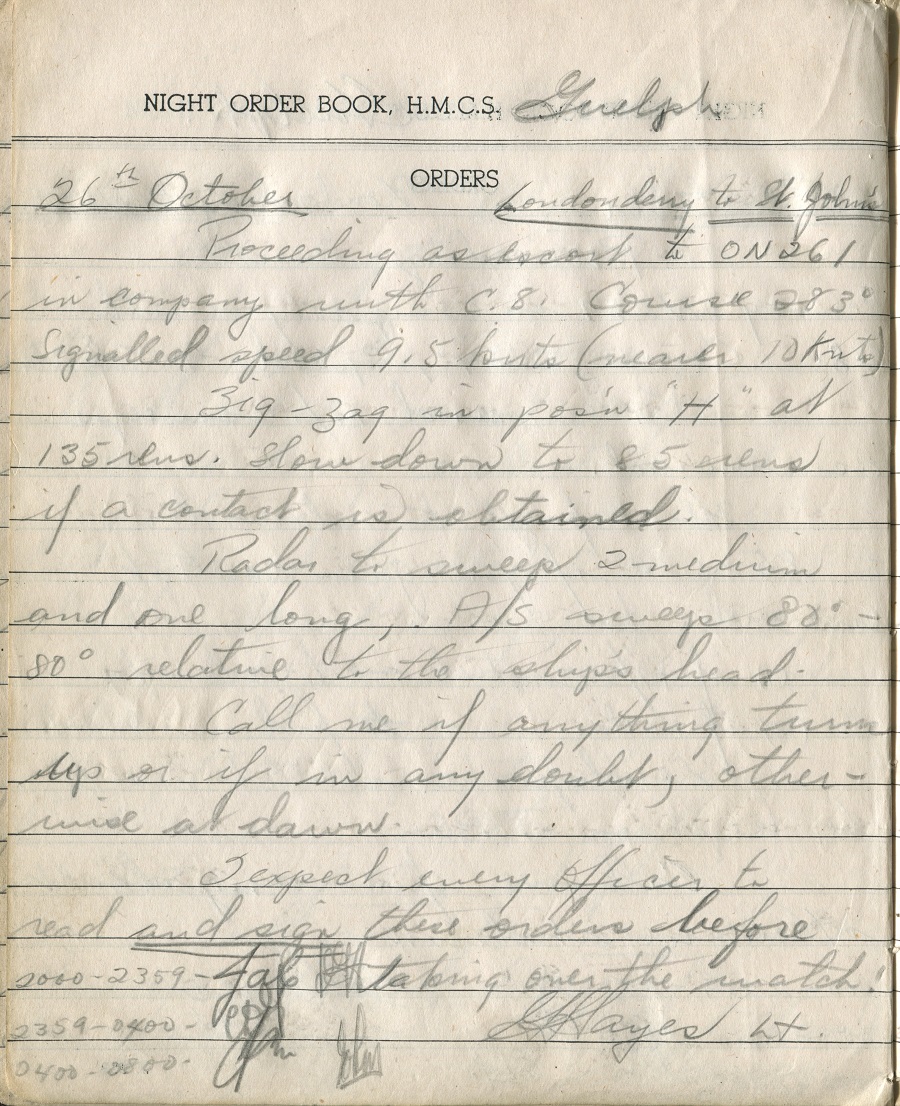 NIGHT ORDER BOOK, H.M.C.S. Guelph
ORDERS
26th October Londonderry to St. John's
Proceeding as escort to ON 261
in company with C.8. Course 283°
Signalled speed 9.5 knots (nearer 10 knts)
Zig-zag in pos'n "H" at
135 revs. Slow down to 85 revs
if a contact is obtained.
Radar to sweep 2 medium
and one long, A/S sweeps 80° -
80° relative to the ship's head.
Call me if anything turns
up or if in any doubt, other-
wise at dawn.
I expect every officer to
read and sign these orders before
2000-2359- taking over the watch!
2359-0400- GHHayes Lt.
0400-0800-